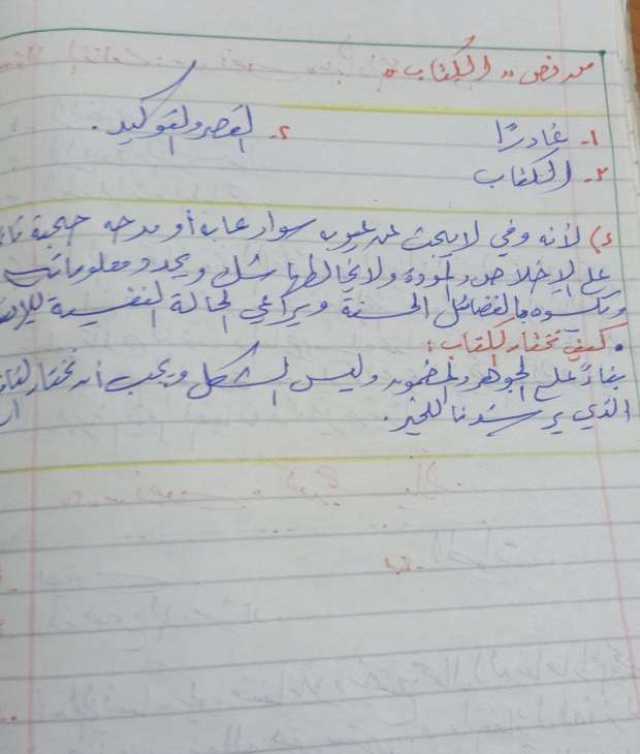 من نص "الكتاب"
١- غادرًا
٢- القصر والتوكيد.
٣- الكتاب
٤) لأنه وفي لا يبحث عن عيوب سواء عابه أو مدحه
على الإخلاص والمودة ولا يخالطها شك ويجدد معلوماتك
وتكسوه بالفضائل الحسنة ويراعي الحالة النفسية
• كيف نختار الكتاب:
بناءً على الجوهر والمضمون وليس الشكل ويجب أن نختار
الذي يرشدنا للخير.